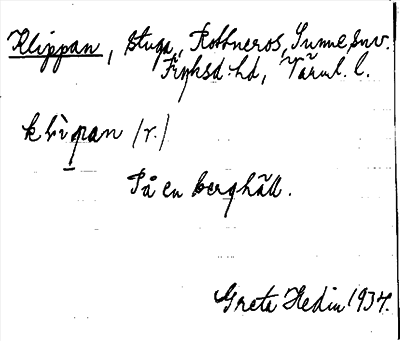 Klippan, stuga, Rottneros, Sunne snv.
Fryksd. hd, Värml. l.
klìpan (r.)
På en berghäll.
Greta Hedin 1937.